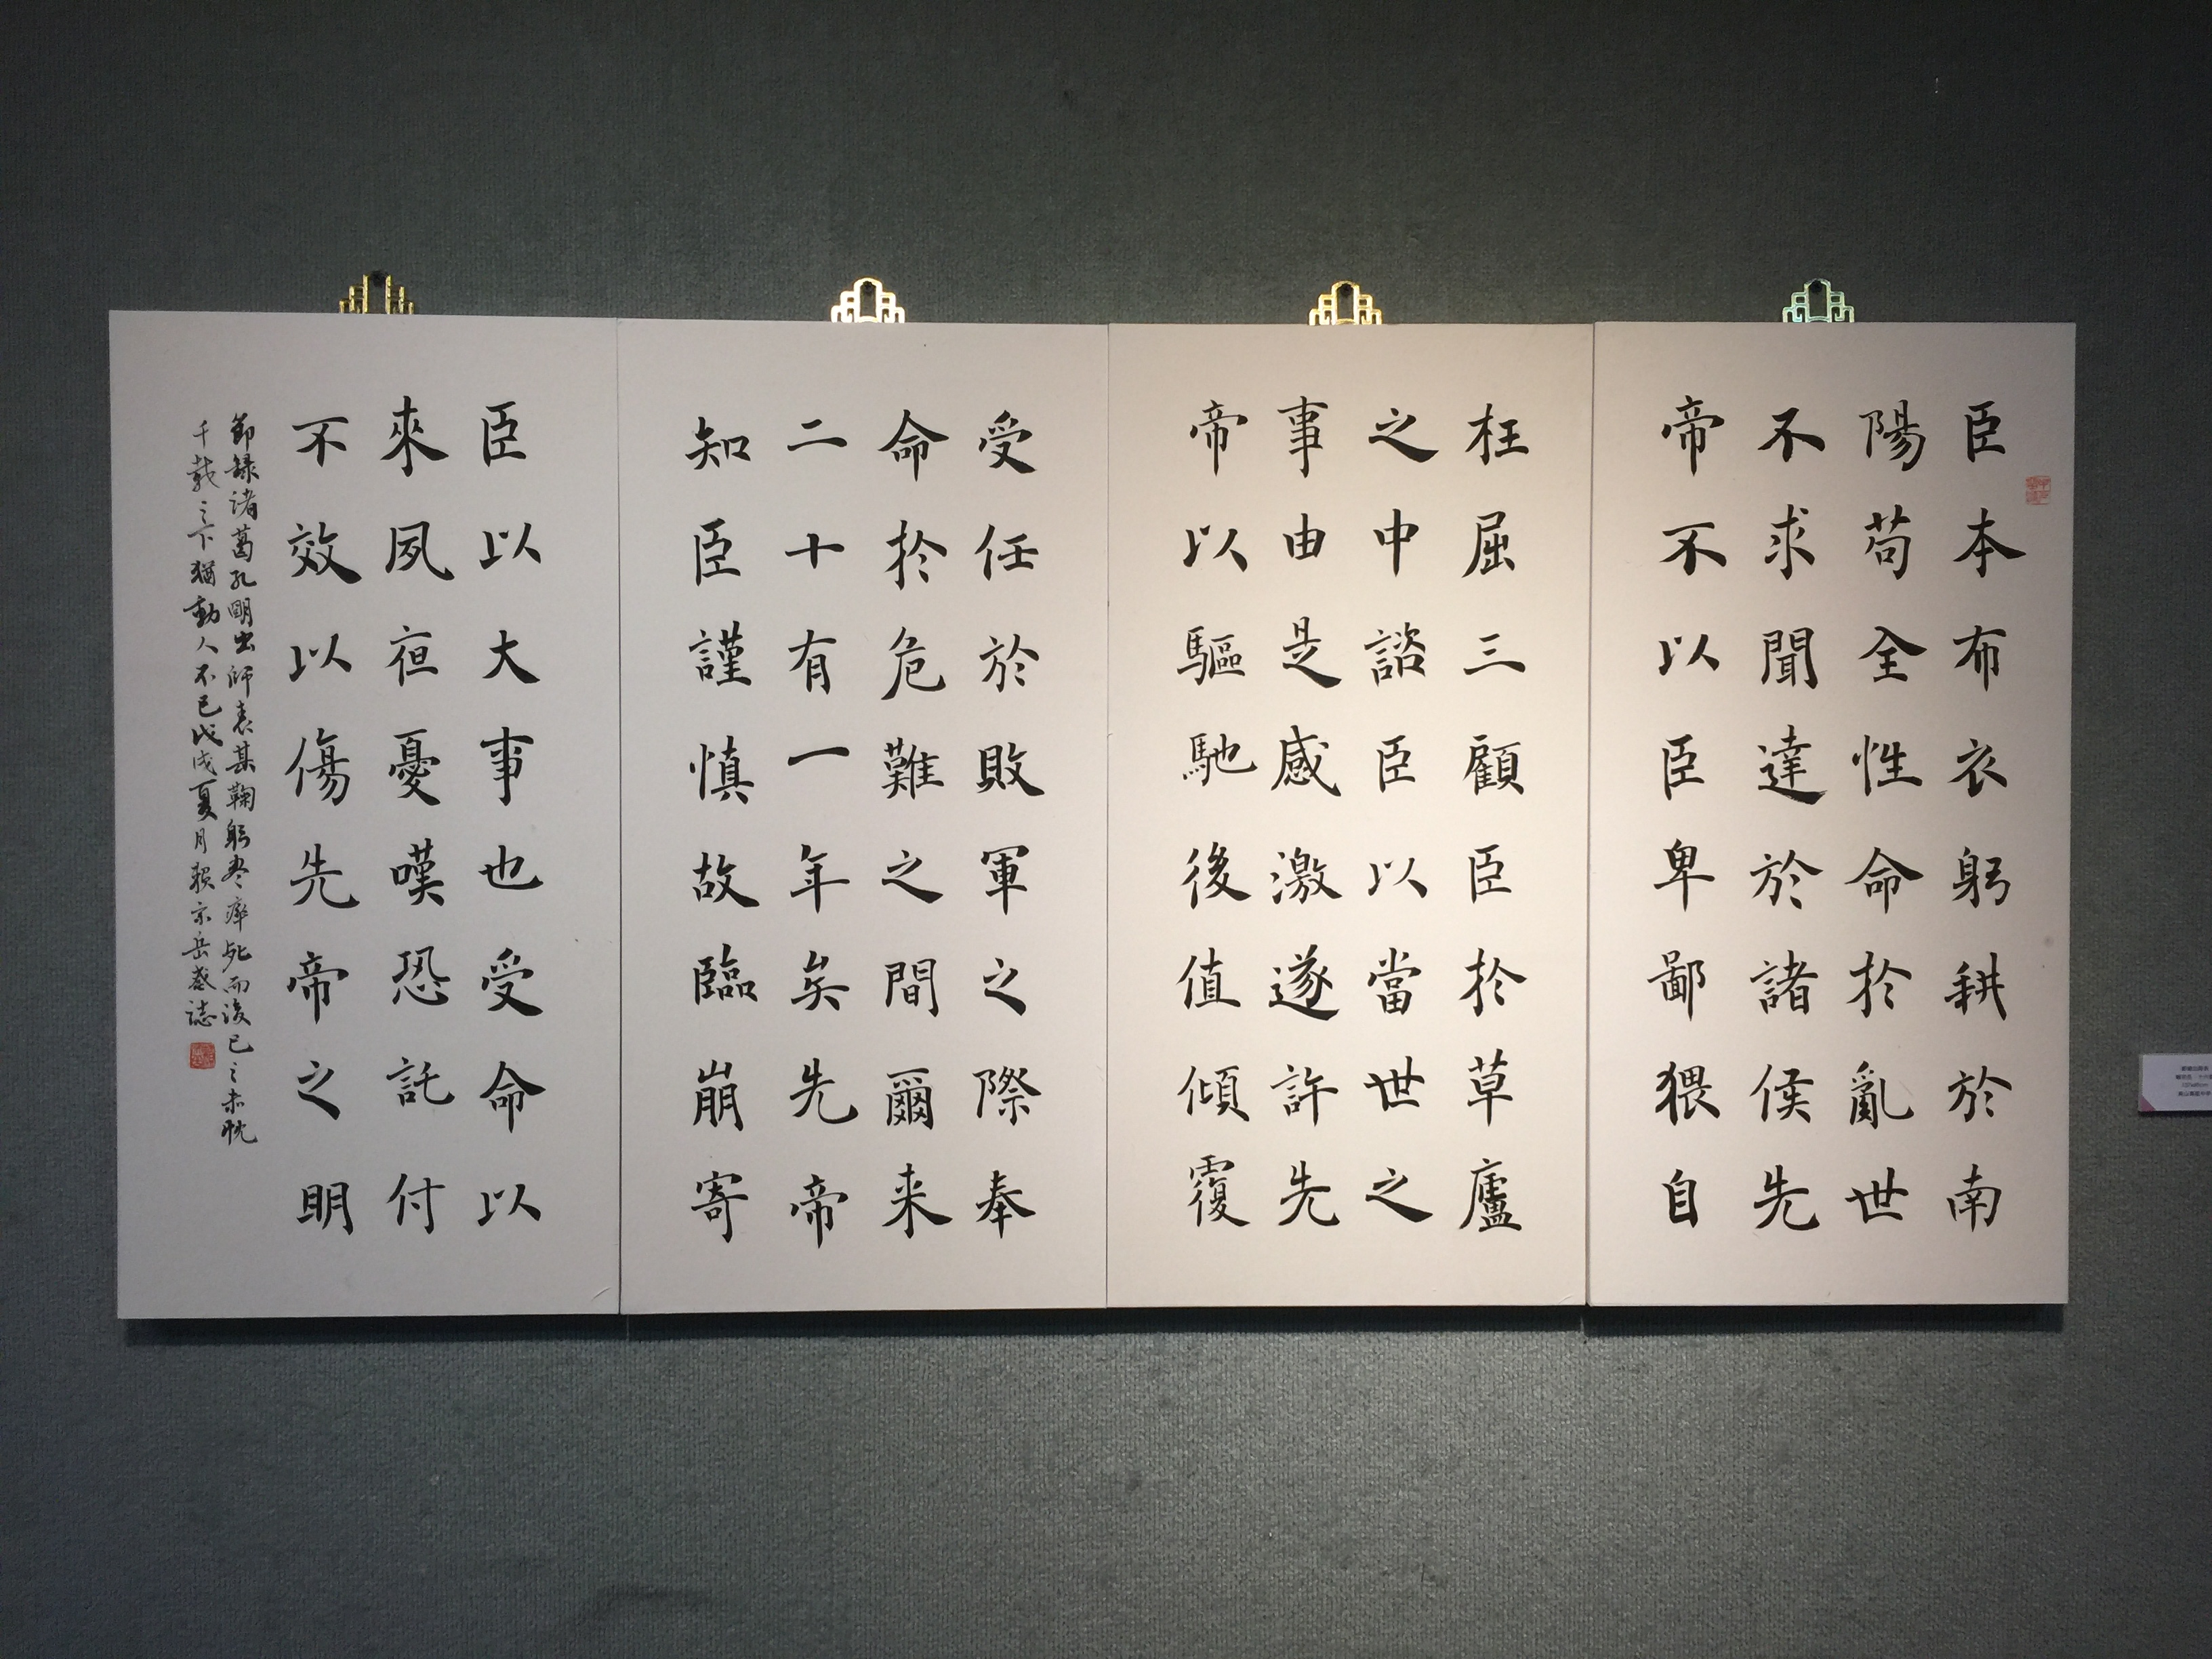 臣本布衣躬耕於南
陽苟全性命於亂世
不求聞達於諸侯先
帝不以臣卑鄙猥自
枉屈三顧臣於草廬
之中諮臣以當世之
事由是感激遂許先
帝以驅馳後值傾覆
受任於敗軍之際奉
命於危難之間爾来
二十有一年矣先帝
知臣謹慎故臨崩寄
臣以大事也受命以
來夙夜憂嘆恐託付
不效以傷先帝之明
節録诸葛孔明出师表其鞠躬尽瘁死而後已之赤忱
千載之下猶動人不已戊戌夏月賴宗岳恭誌